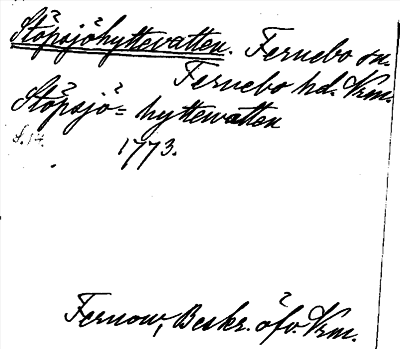 Stöpsjöhyttevatten. Fernebo sn.
Fernebo hd. Vrm.
Stöpsjö= hyttevatten
S. 14.
1773.
Fernow, Beskr. öfv. Vrm.